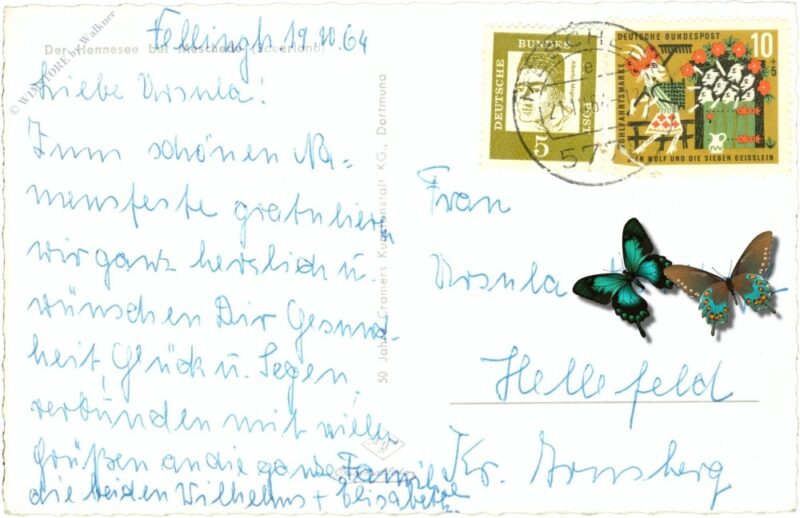 Fellingh 19.10.64
Der Hennesee bei Meschede (Sauerland)
© WEBSTORE by Walkner
Liebe Ursula!
Zum schönen Na-
mensfeste gratulieren
wir ganz herzlich u.
wünschen Dir Gesund-
heit, Glück u. Segen,
verbunden mit vielen
Grüßen an die ganze Familie
die beiden Wilhelms + Elisabeth.
50 Jahre Cramers Kunstanstalt KG., Dortmund
DEUTSCHE
BUNDES
POST
5
DEUTSCHE BUNDESPOST
10
+5
WOHLFAHRTSMARKE
DER WOLF UND DIE SIEBEN GEISSLEIN
577
Frau
Ursula
Hellefeld
Kr. Arnsberg